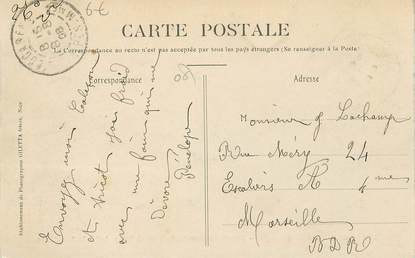 6€
CARTE POSTALE
La Correspondance au recto n'est pas acceptée par tous les pays étrangers (Se renseigner à la Poste)
Correspondance
Envoyez moi Caleçon
et tricot j'ai froid
avec une faim qui me
Dévore
Pénélope
Adresse
Monsieur J Lachamp
Rue Méry 24
Escaliers A 4me
Marseille
BDR
Etablissement de Photographies GILETTA frères, Nice